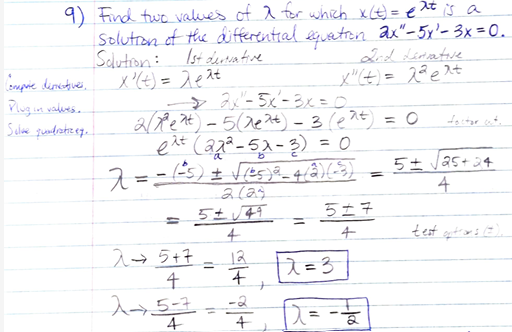 9) Find two values of λ for which x(t) = e^λt is a
solution of the differential equation 2x'' - 5x' - 3x = 0.
Solution: 1st derivative 2nd derivative
Compute derivatives. x'(t) = λe^λt x''(t) = λ²e^λt
Plug in values. → 2x'' - 5x' - 3x = 0
Solve quadratic eq. 2(λ²e^λt) - 5(λe^λt) - 3(e^λt) = 0 factor out
e^λt (2λ² - 5λ - 3) = 0
a b c
λ = -(-5) ± √((-5)² - 4(2)(-3)) / 2(2) = 5 ± √25+24 / 4
= 5 ± √49 / 4 = 5 ± 7 / 4 test options
λ → 5+7 / 4 = 12 / 4, λ = 3
λ → 5-7 / 4 = -2 / 4, λ = -1/2